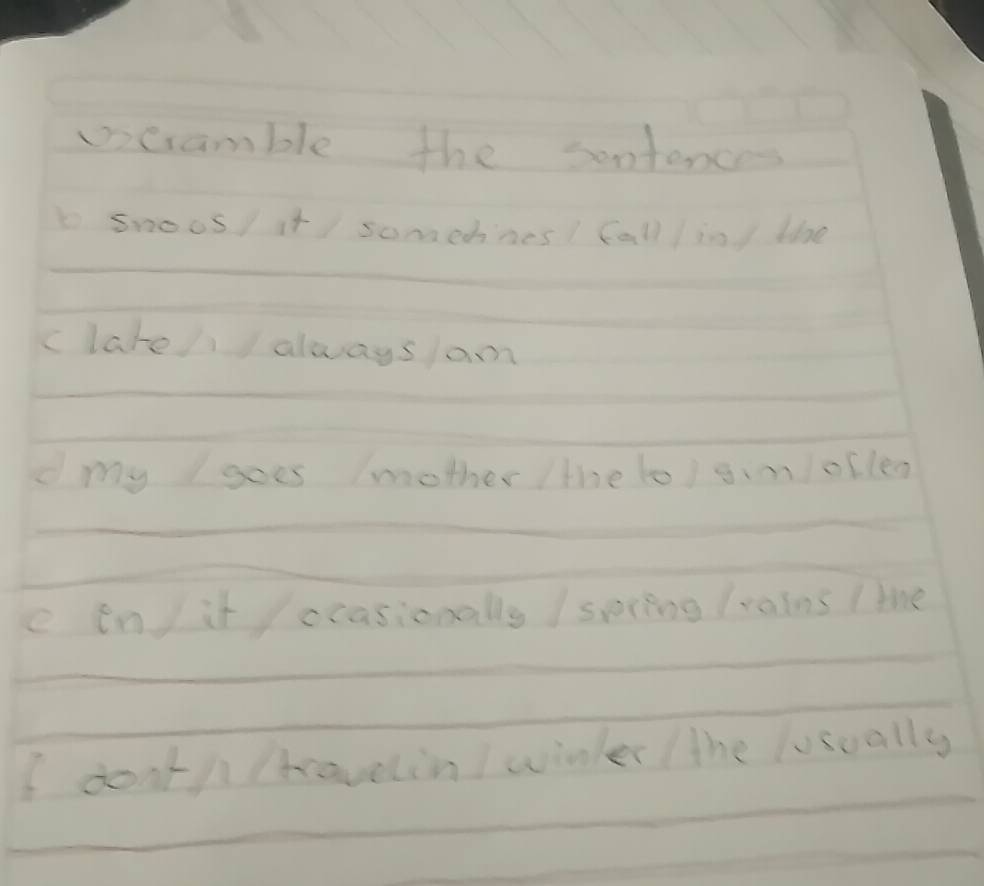 the sentences
b snoos / it / somedines / fall / in / the
c late / i / always / am
d my / goes / mother / the to / gim / often
e in / it / ocasionally / spring / rains / the
f dont / i / travelin / winter / the / usually